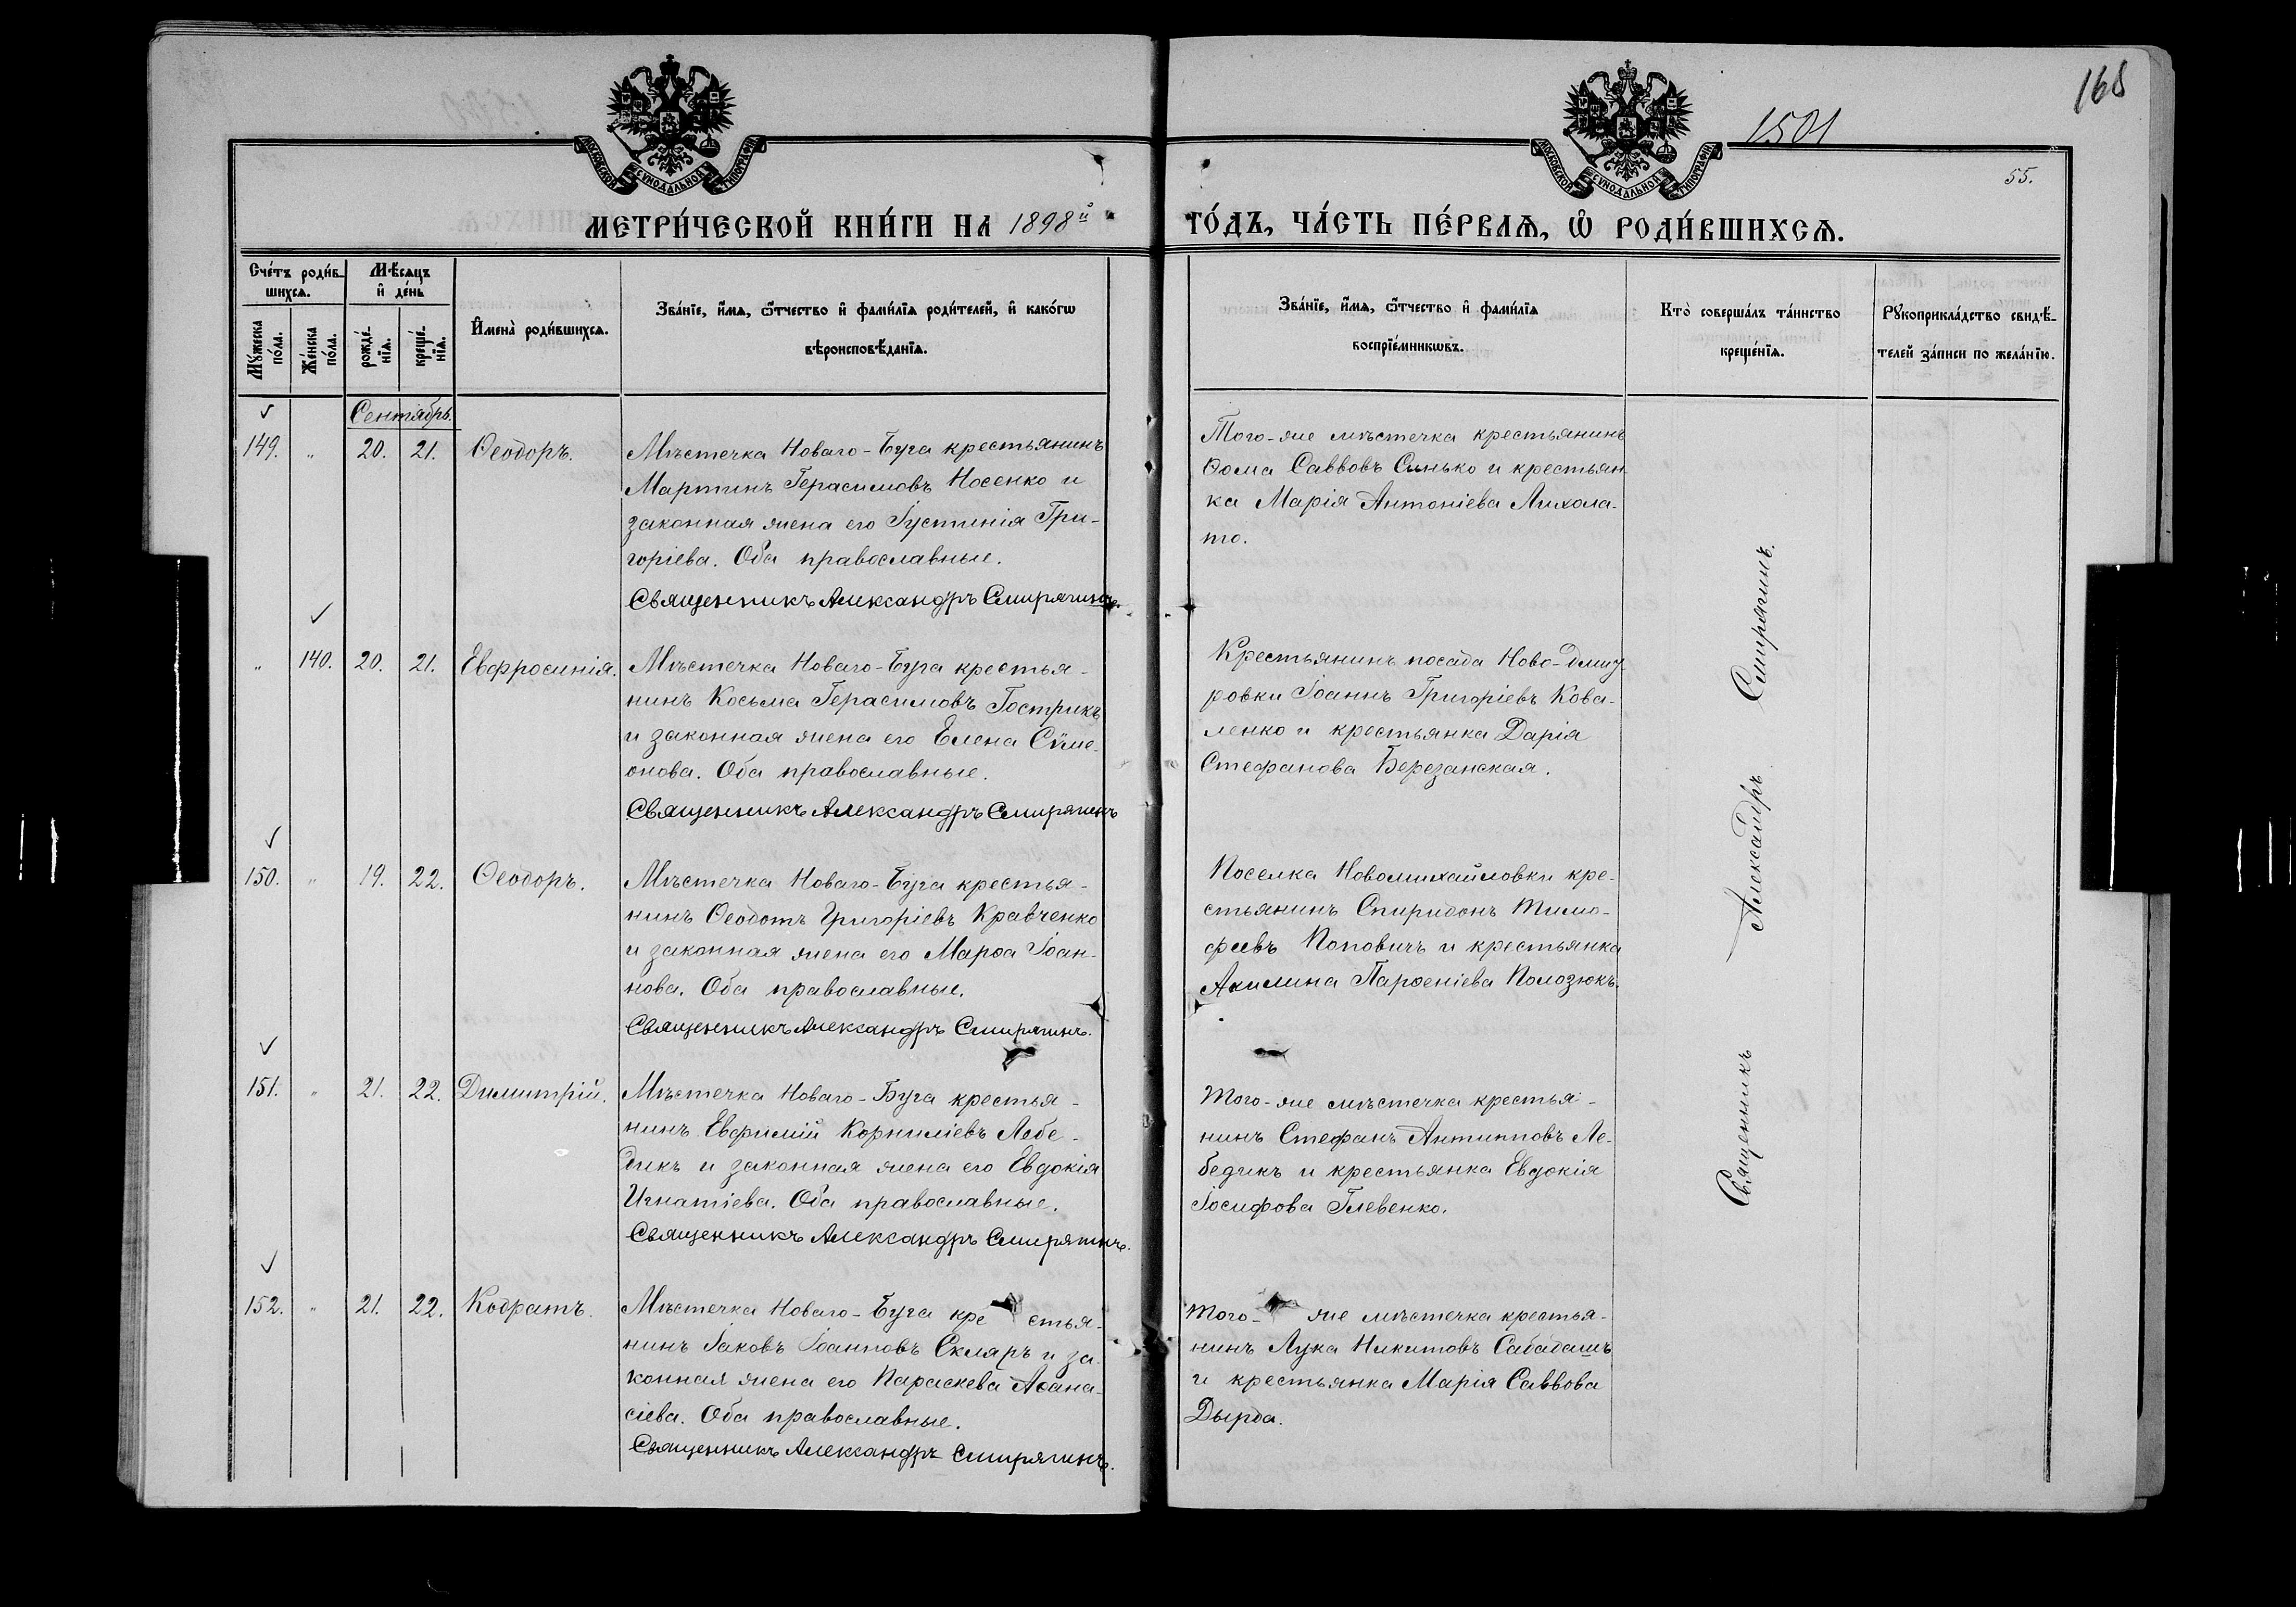 168
1501
55.
МОСКОВСКОЙ СѴНОДАЛЬНОЙ ТИПОГРАФІИ
МОСКОВСКОЙ СѴНОДАЛЬНОЙ ТИПОГРАФІИ
МЕТРИ́ЧЕСКОЙ КНИ́ГИ НА 1898й ГО́ДЪ, ЧА́СТЬ ПЕ́РВАѦ, Ѡ҆ РОДИ́ВШИХСѦ.
Сче́тъ роди́в-
шихсѧ.
Мꙋ́жеска
по́ла.
Же́нска
по́ла.
Мѣ́сѧцъ
и҆ де́нь
рожде́-
нїѧ.
креще́-
нїѧ.
И҆мена̀ роди́вшихсѧ.
Зва́нїе, и҆́мѧ, ѻ҆́тчество и҆ фами́лїѧ роди́телей, и҆ како́гѡ
вѣроисповѣ́данїѧ.
Зва́нїе, и҆́мѧ, ѻ҆́тчество и҆ фами́лїѧ
воспрїе́мникѡвъ.
Кто̀ соверша́лъ та́инство
креще́нїѧ.
Рꙋкоприкла́дство свидѣ́-
телей за́писи по жела́нїю.
Сентябрь.
149. " 20. 21. Ѳеодоръ.
Мѣстечка Новаго-Буга крестьянинъ
Мартинъ Герасимовъ Носенко и
законная жена его Іустинія Гри-
горіева. Оба православные.
Священникъ Александръ Смирягинъ.
Того-же мѣстечка крестьянинъ
Ѳома Саввовъ Синько и крестьян
ка Марія Антоніева Лихола-
то.
" 140. 20. 21. Евфросинія.
Мѣстечка Новаго-Буга крестья-
нинъ Косьма Герасимовъ Гострикъ
и законная жена его Елена Сѵме-
онова. Оба православные.
Священникъ Александръ Смирягинъ
Крестьянинъ посада Ново-Дмит-
ровки Іоаннъ Григоріевъ Кова-
ленко и крестьянка Дарія
Стефанова Березанская.
150. " 19. 22. Ѳеодоръ.
Мѣстечка Новаго-Буга крестья-
нинъ Ѳеодотъ Григоріевъ Кравченко
и законная жена его Марѳа Іоан-
нова. Оба православные.
Священникъ Александръ Смирягинъ.
Поселка Новомихайловки кре-
стьянинъ Спиридонъ Тимо-
феевъ Поповичъ и крестьянка
Акилина Парѳеніева Полозюкъ.
151. " 21. 22. Димитрій.
Мѣстечка Новаго-Буга крестья-
нинъ Евфимій Корниліевъ Лебе-
дикъ и законная жена его Евдокія
Игнатіева. Оба православные.
Священникъ Александръ Смирягинъ.
Того-же мѣстечка крестья-
нинъ Стефанъ Антиповъ Ле-
бедикъ и крестьянка Евдокія
Іосифова Глевенко.
152. " 21. 22. Кодратъ.
Мѣстечка Новаго-Буга крестья-
нинъ Іаковъ Іоанновъ Скляръ и за-
конная жена его Параскева Аѳана-
сіева. Оба православные.
Священникъ Александръ Смирягинъ.
Того-же мѣстечка крестья-
нинъ Лука Никитовъ Сабадашъ
и крестьянка Марія Саввова
Дырда.
Священникъ Александръ Смирягинъ.